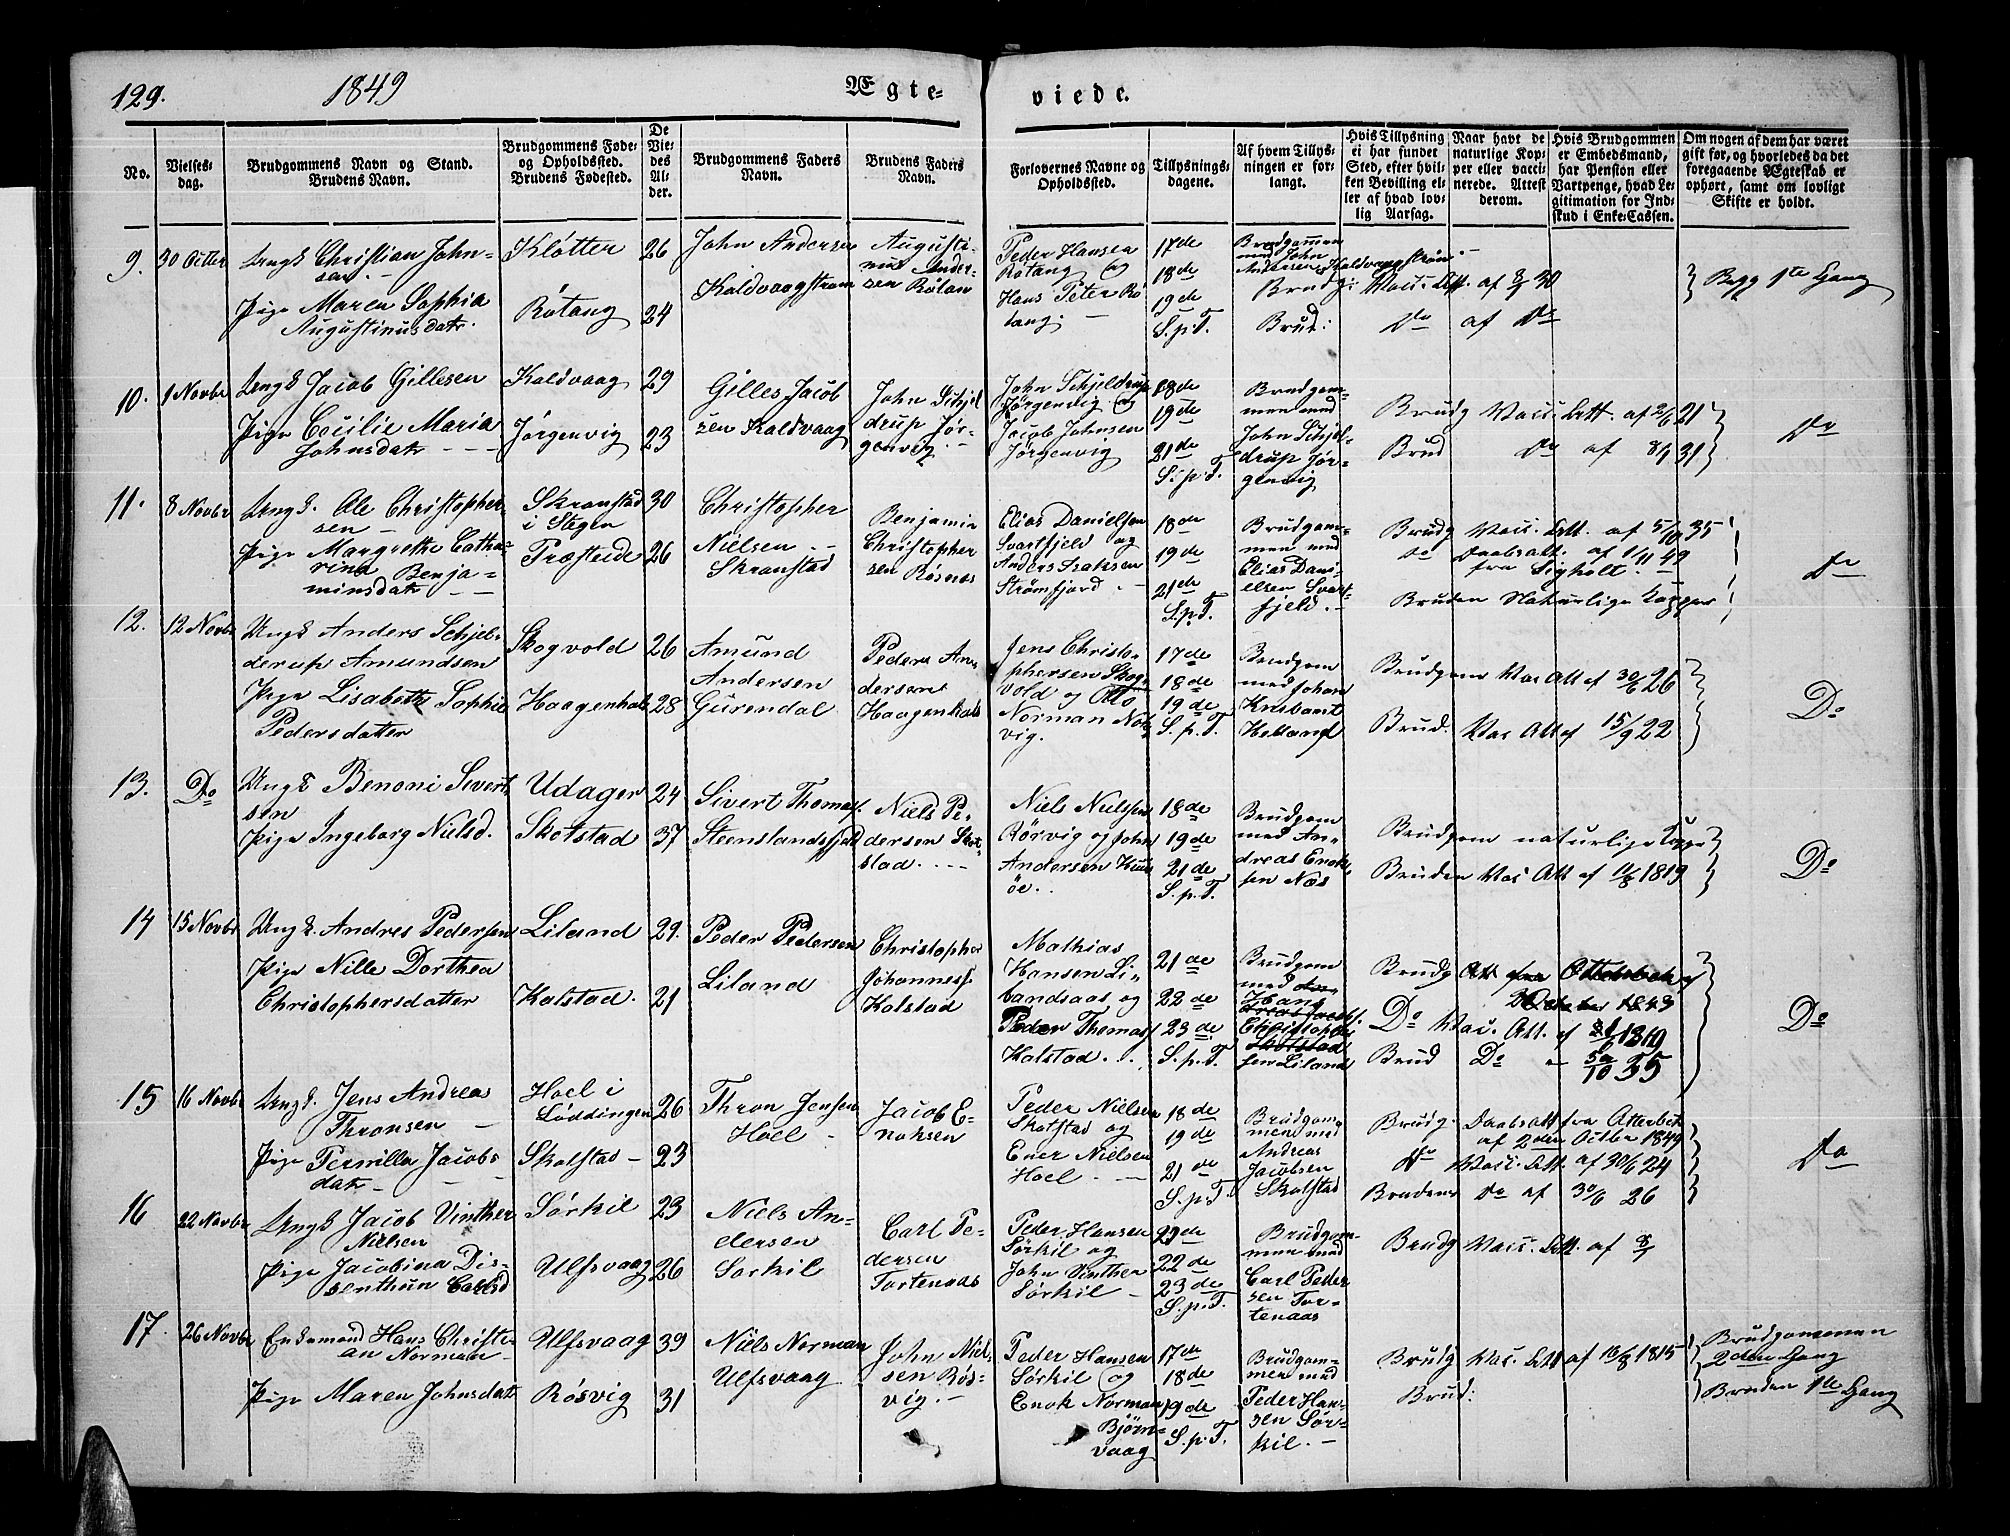 129. 1849 Ægte- viede.
No.
Vielses-
dag.
Brudgommens Navn og Stand.
Brudens Navn.
Brudgommens Føde-
og Opholdssted.
Brudens Fødested.
De
Vie-
des
Al-
der.
Brudgommens Faders
Navn.
Brudens Faders
Navn.
Forlovernes Navne og
Opholdssted.
Tillysnings-
dagene.
Af hvem Tillys-
ningen er for-
langt.
Hvis Tillysning
ei har fundet
Sted, efter hvil-
ken Bevilling el-
ler af hvad lov-
lig Aarsag.
Naar havt de
naturlige Kop-
per eller vacci-
nerede. Attest
derom.
Hvis Brudgommen
er Embedsmand,
har Pension eller
Vartpenge, hvad Le-
gitimation for Ind-
skud i Enke-Cassen.
Om nogen af dem har været
gift før, og hvorledes da det
foregaaende Ægteskab er
ophørt, samt om lovligt
Skifte er holdt.
9.
30 Octbr
Ungk Christian John-
sen
Pige Maren Sophia
Augustinusdatr.
Kløtter
Røtang
26
24
John Andersen
Kaldvaagstrøm
Augusti-
nus Ander-
sen Røtan
Peder Hansen
Røtang og
Hans Peter Rø
tang.
17de
18de
19de
S.p.T.
Brudgommen
med John
Andersen Kaldvaagstrøm
Brudg: Vacc. Att. af 8/9 30
Brud: Do af Do
Begge 1te Gang
10.
1 Novbr
Ungk Jacob Gillesen
Pige Cecilie Maria
Johnsdatr
Kaldvaag
Jørgenvig
29
23
Gilles Jacob
sen Kaldvaag
John Schjel
drup Jør-
genvig
John Schjeldrup
Jørgenvig og
Jacob Johnsen
Jørgenvig
18de
19de
21de
S.p.T.
Brudgom-
men med
John Schjel-
drup Jør-
genvig
Brudg Vacc. Att. af 2/6 21
Brud Do af 8/9 31
Do
11.
8 Novbr
Ungk. Ole Christopher-
sen
Pige Margrethe Catha-
rina Benja-
minsdatr
Skranstad
i Stegen
Præsteide
30
26
Christopher
Nielsen
Skranstad
Benjamin
Christopher
sen Røsnes
Elias Danielsen
Svartfjeld og
Anders Isaksen
Strømfjord
18de
19de
21de
S.p.T.
Brudgom-
men med
Elias Dani-
elsen Svart-
fjeld.
Brudg Vacc. Att. af 5/10 35
Do Daabsatt. af 1/11 49
fra Sigholt.
Bruden Naturlige Kopper
Do
12.
12 Novbr
Ungk Anders Schjel-
derup Amundsen
Pige Lisabeth Sophie
Pedersdatter
Skogvold
Haagenhals
26
28
Amund
Andersen
Gurendal
Peder An-
dersen
Haagenhals
Jens Christo-
phersen Skog-
vold og Otto
Norman Nor-
vig.
17de
18de
19de
S.p.T.
Brudgom
med Johan
Helland
Brudgom Vac Att af 30/6 26
Brud. Vac Att af 15/9 22
Do
13.
Do
Ungk Benoni Sivert
sen
Pige Ingeborg Nielsd.
Udager
Skotstad
24
37
Sivert Thomas.
Steenslandsfjeld
Niels Pe-
dersen Skot-
stad.
Niels Nielsen
Rørvig og John
Andersen
øe.
18de
19de
21de
S.p.T.
Brudgom
med An-
dreas Enok-
sen Næs
Brudgom naturlige Kopper
Bruden Vac Att af 11/8 1819
Do
14
15 Novbr
Ungk. Andres Pedersen
Pige Nille Dorthea
Christophersdatter
Liland
Kalstad.
29.
21
Peder Pedersen
Liland
Christopher
Johanness.
Kalstad
Mathias
Hansen Li-
landsaas og
Peder Thomass.
Kalstad.
21de
22de
23de
S.p.T.
Brudgom
med
Hans
Christopher
sen Liland
Brudg
Do Vac. Att. af 1819
Brud Do 30/10 35
Do
15
16 Novbr
Ungk. Jens Andreas
Thronsen
Pige Pernilla Jacobs
datr
Hoel i
Løddingen
Skotstad
26
23
Thron Jensen
Hoel
Jacob E-
noksen
Peder Nielsen
Skotstad og
Ener Nielsen
Hoel.
18de
19de
21de
S.p.T.
Brudgom-
men med
Andreas
Jacobsen
Skotstad
Brudg. Daabsatt fra Atterbek
af 2den Octbr 1849
Do Vacc. Att. af 30/6 24
Brudens Do af 30/6 26
Do
16
22 Novbr
Ungk Jacob Vinther
Nielsen
Pige Jacobina Dis-
senthun Carlsd
Sørkil
Ulfsvaag
23
26
Niels An-
dersen
Sørkil
Carl Pe-
dersen
Tortenaas
Peder Hansen
Sørkil og
John Vinther
Sørkil
22de
23de
S.p.T.
Brudgom-
men med
Carl Peder
sen Tor-
tenaas
Brudg Vacc. Att. af
17.
26 Novbr
Enkemand Hans Christi-
an Norman
Pige Maren Johnsdatr
Ulfsvaag
Røsvig
39
31
Niels Norman
Ulfsvaag
John Niel-
sen Røs-
vig.
Peder Hansen
Sørkil og
Enok Norman
Bjørn-
vaag
17de
18de
19de
S.p.T.
Brudgom-
men med
Peder Han-
sen Sør-
kil.
Brudg Vacc. Att af 10/8 1815
Brud:
Brudgommen
2den Gang
Bruden 1te Gang